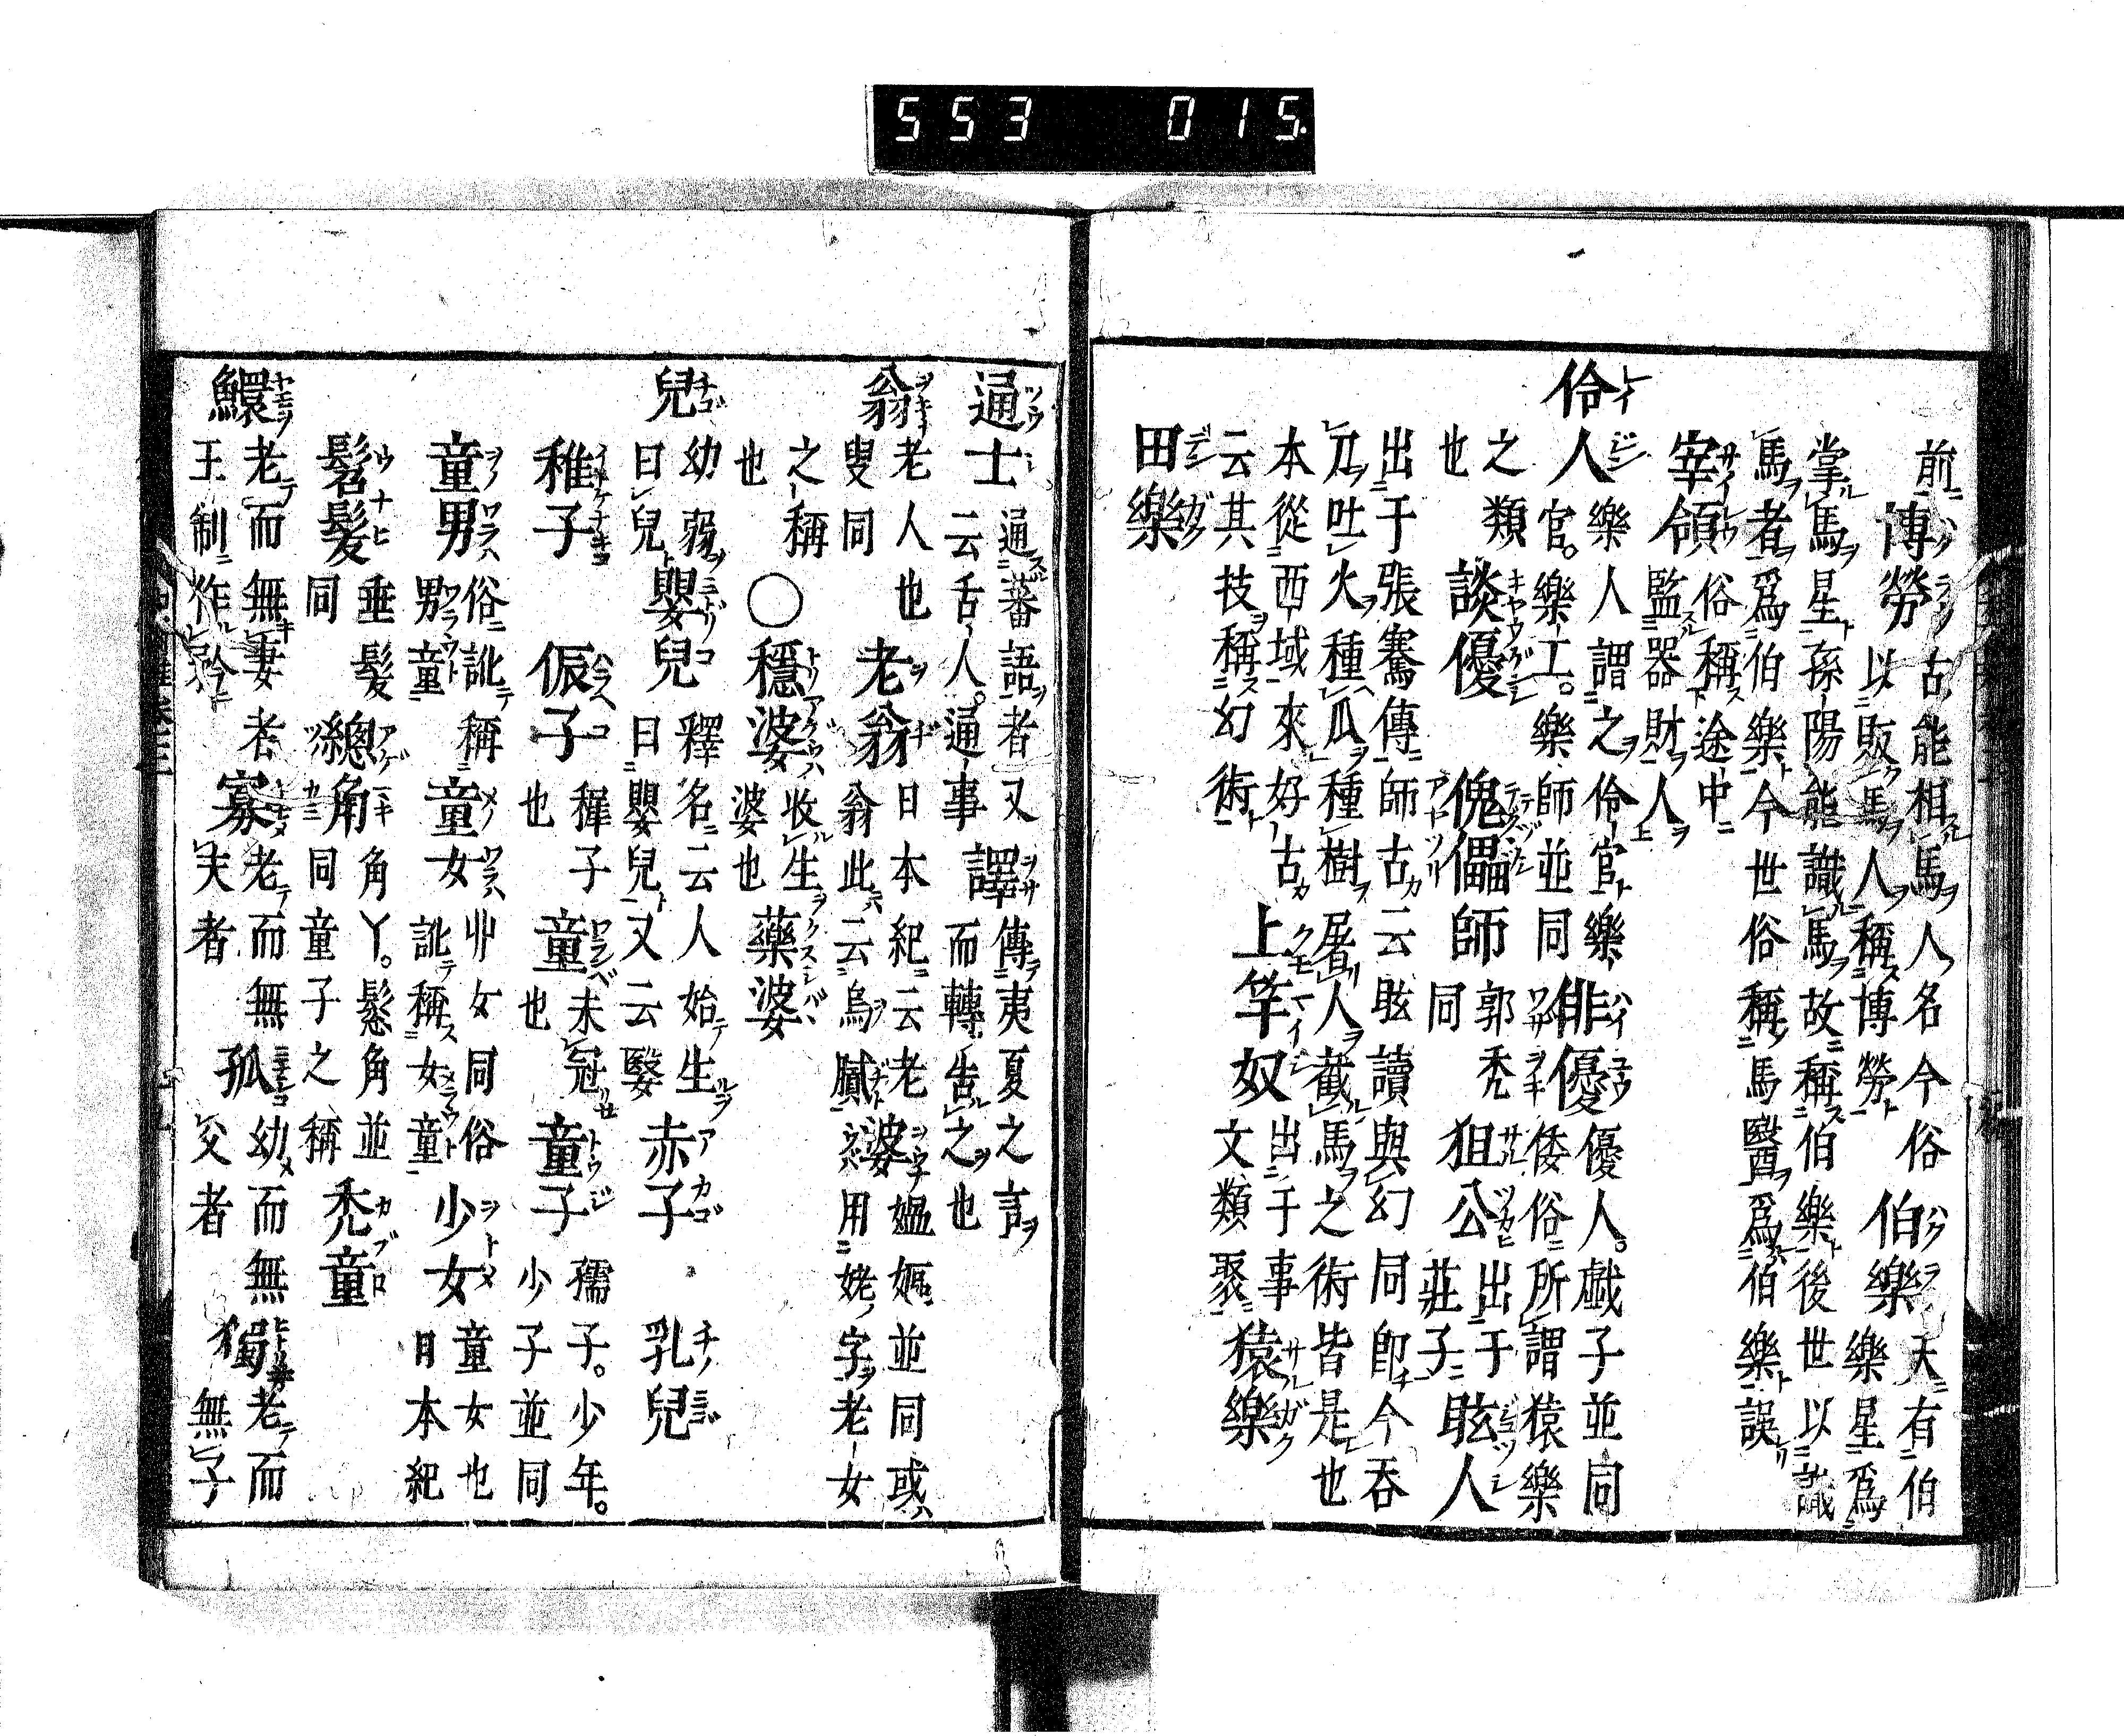 前 博勞 古能相馬人名今俗以販馬人稱博勞 伯樂 天有伯樂星爲
掌馬星孫陽能識馬故稱伯樂後世以識
馬者爲伯樂今世俗稱馬醫爲伯樂誤
宰領 俗稱途中監器財人
伶人 樂人謂之伶官樂官。樂工。樂師並同 俳優 優人。戯子並同倭俗所謂猿樂
之類也 談優 傀儡師 郭禿同 狙公 出于莊子 眩人
出于張騫傳師古云眩讀與幻同即今呑
刀吐火種瓜種樹屠人截馬之術皆是也
本從西域來好古云其技稱幻術 上竿奴 出于事文類聚 猿樂
田樂
通士 通蕃語者又云舌人。通事 譯 傳夷夏之言而轉告之也
翁 老人也叟同 老翁 日本紀云老翁此云烏膩 婆 媼嫗並同或用姥字老女
之稱也 ○ 穩婆 收生婆也 藥婆
兒 幼弱曰兒 嬰兒 釋名云人始生曰嬰兒又云嫛 赤子 乳兒
稚子 侲子 穉子也 童 未冠也 童子 孺子。少年。少子並同
童男 俗訛稱男童 童女 丱女同俗訛稱女童 少女 童女也日本紀
髫髮 垂髮同 總角 角丫。鬆角並同童子之稱 禿童
鰥 老而無妻者王制作矜 寡 老而無夫者 孤 幼而無父者 獨 老而無子
553 015.